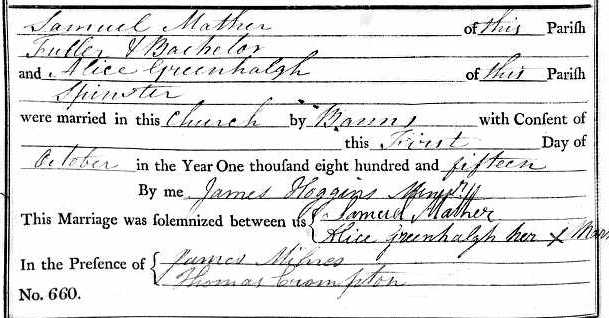 Samuel Mather of this Pariſh
Fuller & Bachelor
and Alice Greenhalgh of this Pariſh
Spinster
were married in this Church by Banns with Conſent of
this First Day of
October in the Year One thouſand eight hundred and fifteen
By me James Hoggins
This Marriage was ſolemnized between us { Samuel Mather
Alice Greenhalgh her x Mark
In the Preſence of { James Milnes
Thomas Crompton
No. 660.